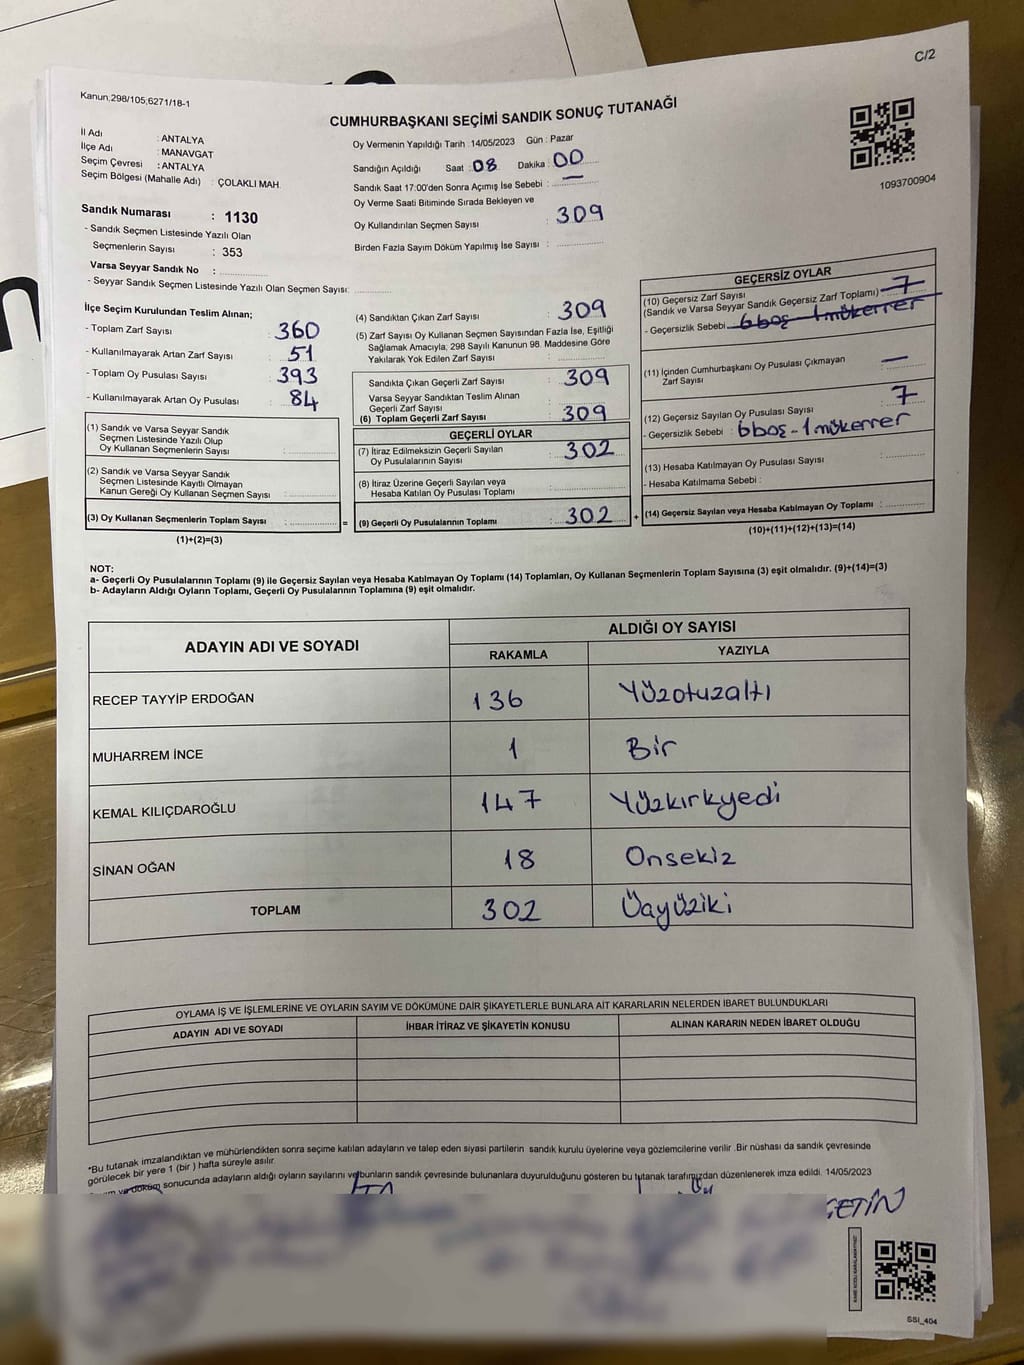 C/2
Kanun,298/105;6271/18-1
CUMHURBAŞKANI SEÇİMİ SANDIK SONUÇ TUTANAĞI
İl Adı : ANTALYA
İlçe Adı : MANAVGAT
Seçim Çevresi : ANTALYA
Seçim Bölgesi (Mahalle Adı) : ÇOLAKLI MAH.
Oy Vermenin Yapıldığı Tarih :14/05/2023 Gün : Pazar
Sandığın Açıldığı Saat :08 Dakika : 00
Sandık Saat 17:00'den Sonra Açımış İse Sebebi : —
1093700904
Sandık Numarası : 1130
- Sandık Seçmen Listesinde Yazılı Olan
Seçmenlerin Sayısı : 353
Varsa Seyyar Sandık No :
- Seyyar Sandık Seçmen Listesinde Yazılı Olan Seçmen Sayısı:
Oy Verme Saati Bitiminde Sırada Bekleyen ve
Oy Kullandırılan Seçmen Sayısı : 309
Birden Fazla Sayım Döküm Yapılmış İse Sayısı :
İlçe Seçim Kurulundan Teslim Alınan;
- Toplam Zarf Sayısı : 360
- Kullanılmayarak Artan Zarf Sayısı : 51
- Toplam Oy Pusulası Sayısı : 393
- Kullanılmayarak Artan Oy Pusulası : 84
(1) Sandık ve Varsa Seyyar Sandık
Seçmen Listesinde Yazılı Olup
Oy Kullanan Seçmenlerin Sayısı :
(2) Sandık ve Varsa Seyyar Sandık
Seçmen Listesinde Kayıtlı Olmayan
Kanun Gereği Oy Kullanan Seçmen Sayısı :
(3) Oy Kullanan Seçmenlerin Toplam Sayısı :
(1)+(2)=(3)
(4) Sandıktan Çıkan Zarf Sayısı : 309
(5) Zarf Sayısı Oy Kullanan Seçmen Sayısından Fazla İse, Eşitliği
Sağlamak Amacıyla, 298 Sayılı Kanunun 98. Maddesine Göre
Yakılarak Yok Edilen Zarf Sayısı :
Sandıkta Çıkan Geçerli Zarf Sayısı : 309
Varsa Seyyar Sandıktan Teslim Alınan
Geçerli Zarf Sayısı :
(6) Toplam Geçerli Zarf Sayısı : 309
GEÇERLİ OYLAR
(7) İtiraz Edilmeksizin Geçerli Sayılan
Oy Pusulalarının Sayısı : 302
(8) İtiraz Üzerine Geçerli Sayılan veya
Hesaba Katılan Oy Pusulası Toplamı :
= (9) Geçerli Oy Pusulalarının Toplamı : 302 +
GEÇERSİZ OYLAR
(10) Geçersiz Zarf Sayısı
(Sandık ve Varsa Seyyar Sandık Geçersiz Zarf Toplamı) : 7
- Geçersizlik Sebebi : 6 boş - 1 mükerrer
(11) İçinden Cumhurbaşkanı Oy Pusulası Çıkmayan
Zarf Sayısı : —
(12) Geçersiz Sayılan Oy Pusulası Sayısı : 7
- Geçersizlik Sebebi : 6 boş - 1 mükerrer
(13) Hesaba Katılmayan Oy Pusulası Sayısı :
- Hesaba Katılmama Sebebi :
(14) Geçersiz Sayılan veya Hesaba Katılmayan Oy Toplamı :
(10)+(11)+(12)+(13)=(14)
NOT:
a- Geçerli Oy Pusulalarının Toplamı (9) ile Geçersiz Sayılan veya Hesaba Katılmayan Oy Toplamı (14) Toplamları, Oy Kullanan Seçmenlerin Toplam Sayısına (3) eşit olmalıdır. (9)+(14)=(3)
b- Adayların Aldığı Oyların Toplamı, Geçerli Oy Pusulalarının Toplamına (9) eşit olmalıdır.
ADAYIN ADI VE SOYADI ALDIĞI OY SAYISI
RAKAMLA YAZIYLA
RECEP TAYYİP ERDOĞAN 136 Yüzotuzaltı
MUHARREM İNCE 1 Bir
KEMAL KILIÇDAROĞLU 147 Yüzkırkyedi
SİNAN OĞAN 18 Onsekiz
TOPLAM 302 Üçyüziki
OYLAMA İŞ VE İŞLEMLERİNE VE OYLARIN SAYIM VE DÖKÜMÜNE DAİR ŞİKAYETLERLE BUNLARA AİT KARARLARIN NELERDEN İBARET BULUNDUKLARI
ADAYIN ADI VE SOYADI İHBAR İTİRAZ VE ŞİKAYETİN KONUSU ALINAN KARARIN NEDEN İBARET OLDUĞU
*Bu tutanak imzalandıktan ve mühürlendikten sonra seçime katılan adayların ve talep eden siyasi partilerin sandık kurulu üyelerine veya gözlemcilerine verilir .Bir nüshası da sandık çevresinde
görülecek bir yere 1 (bir ) hafta süreyle asılır.
ve döküm sonucunda adayların aldığı oyların sayılarını ve bunların sandık çevresinde bulunanlara duyurulduğunu gösteren bu tutanak tarafımızdan düzenlenerek imza edildi. 14/05/2023
ÇETİN
SSI_404